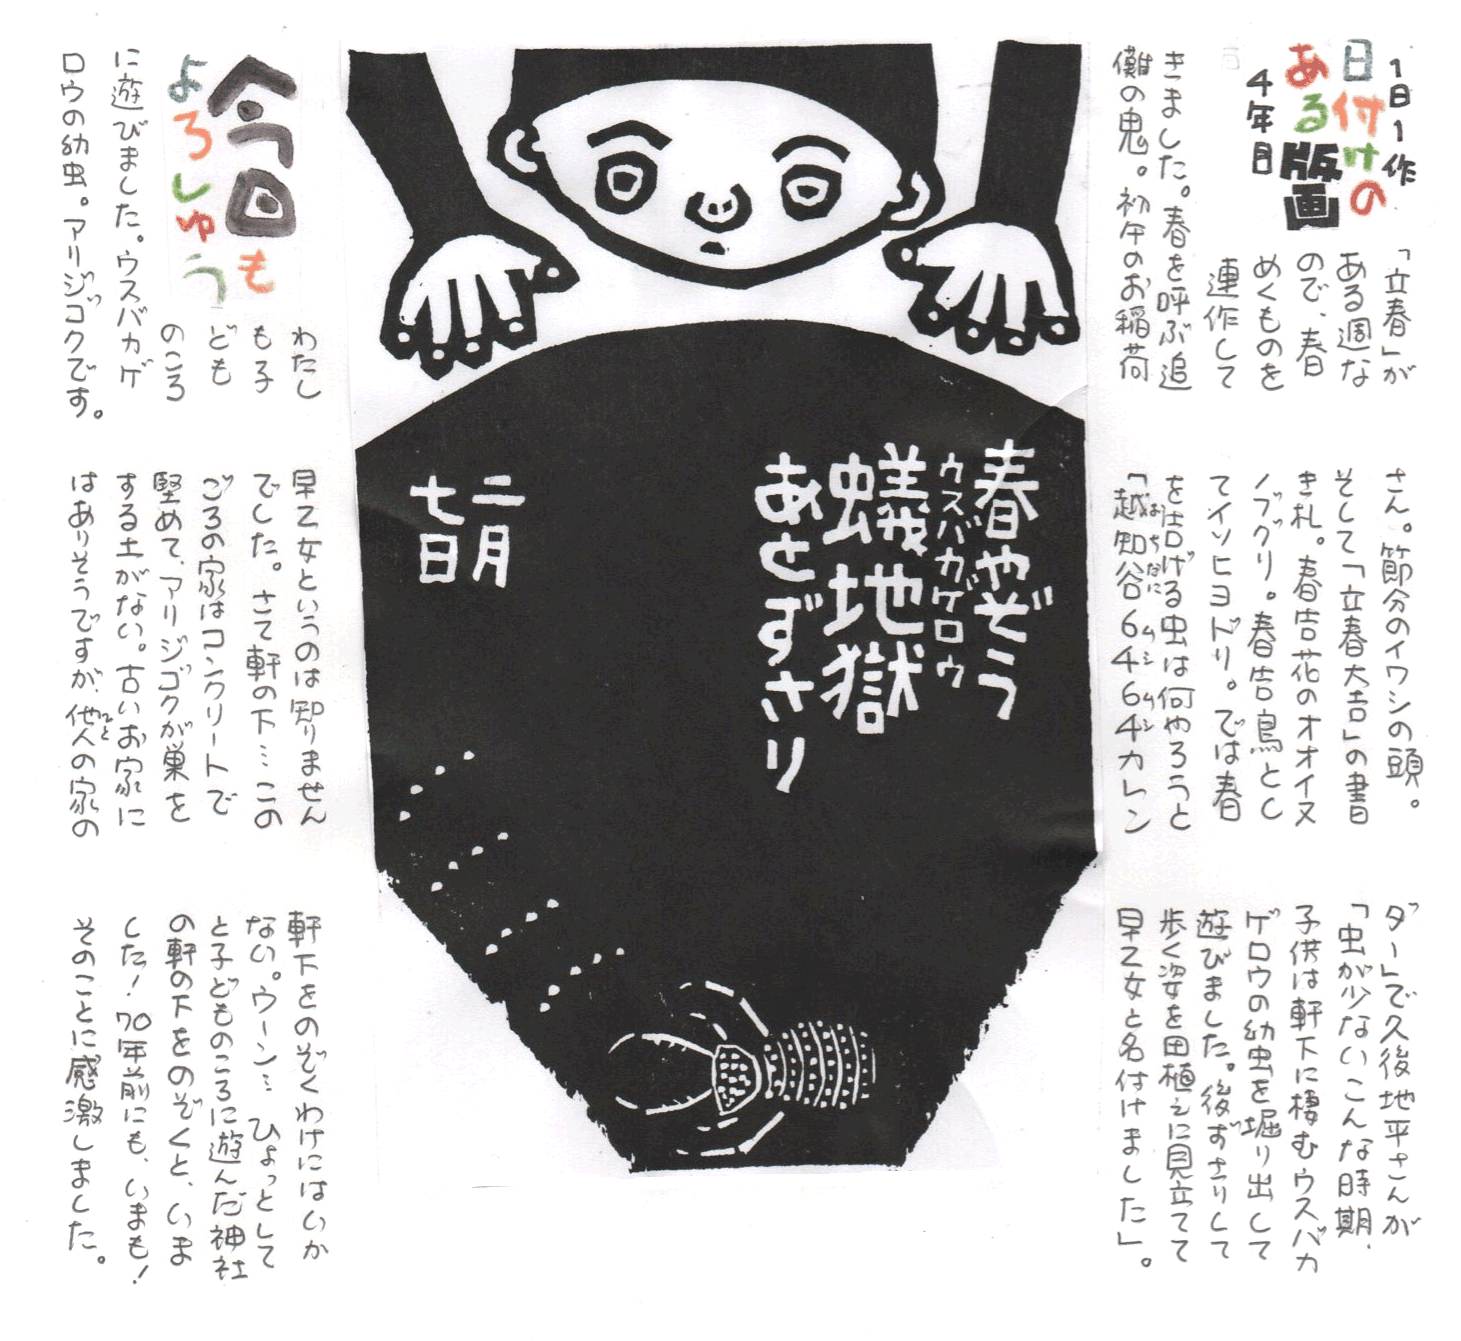 1日1作
日付けの
ある版画
4年目
「立春」が
ある週な
ので、春
めくものを
連作して
きました。春を呼ぶ追
儺の鬼。初午のお稲荷
さん。節分のイワシの頭。
そして「立春大吉」の書
き札。春告花のオオイヌ
ノフグリ。春告鳥とし
てイソヒヨドリ。では春
を告げる虫は何やろうと
「越知谷6464カレン
おちだに ムシムシ
ダー」で久後地平さんが
「虫が少ないこんな時期、
子供は軒下に棲むウスバカ
ゲロウの幼虫を堀り出して
遊びました。後ずさりして
歩く姿を田植えに見立てて
早乙女と名付けました」。
春やぞう
ウスバカゲロウ
蟻地獄
あとずさり
二月
七日
今回も
よろしゅう
わたし
も子
ども
のころ
に遊びました。ウスバカゲ
ロウの幼虫。アリジゴクです。
早乙女というのは知りません
でした。さて軒の下…この
ごろの家はコンクリートで
堅めて、アリジゴクが巣を
する土がない。古いお家に
はありそうですが、他人の家の
ひと
軒下をのぞくわけにはいか
ない。ウーン… ひょっとして
と子どものころに遊んだ神社
の軒の下をのぞくと、いま
した！70年前にも、いまも！
そのことに感激しました。